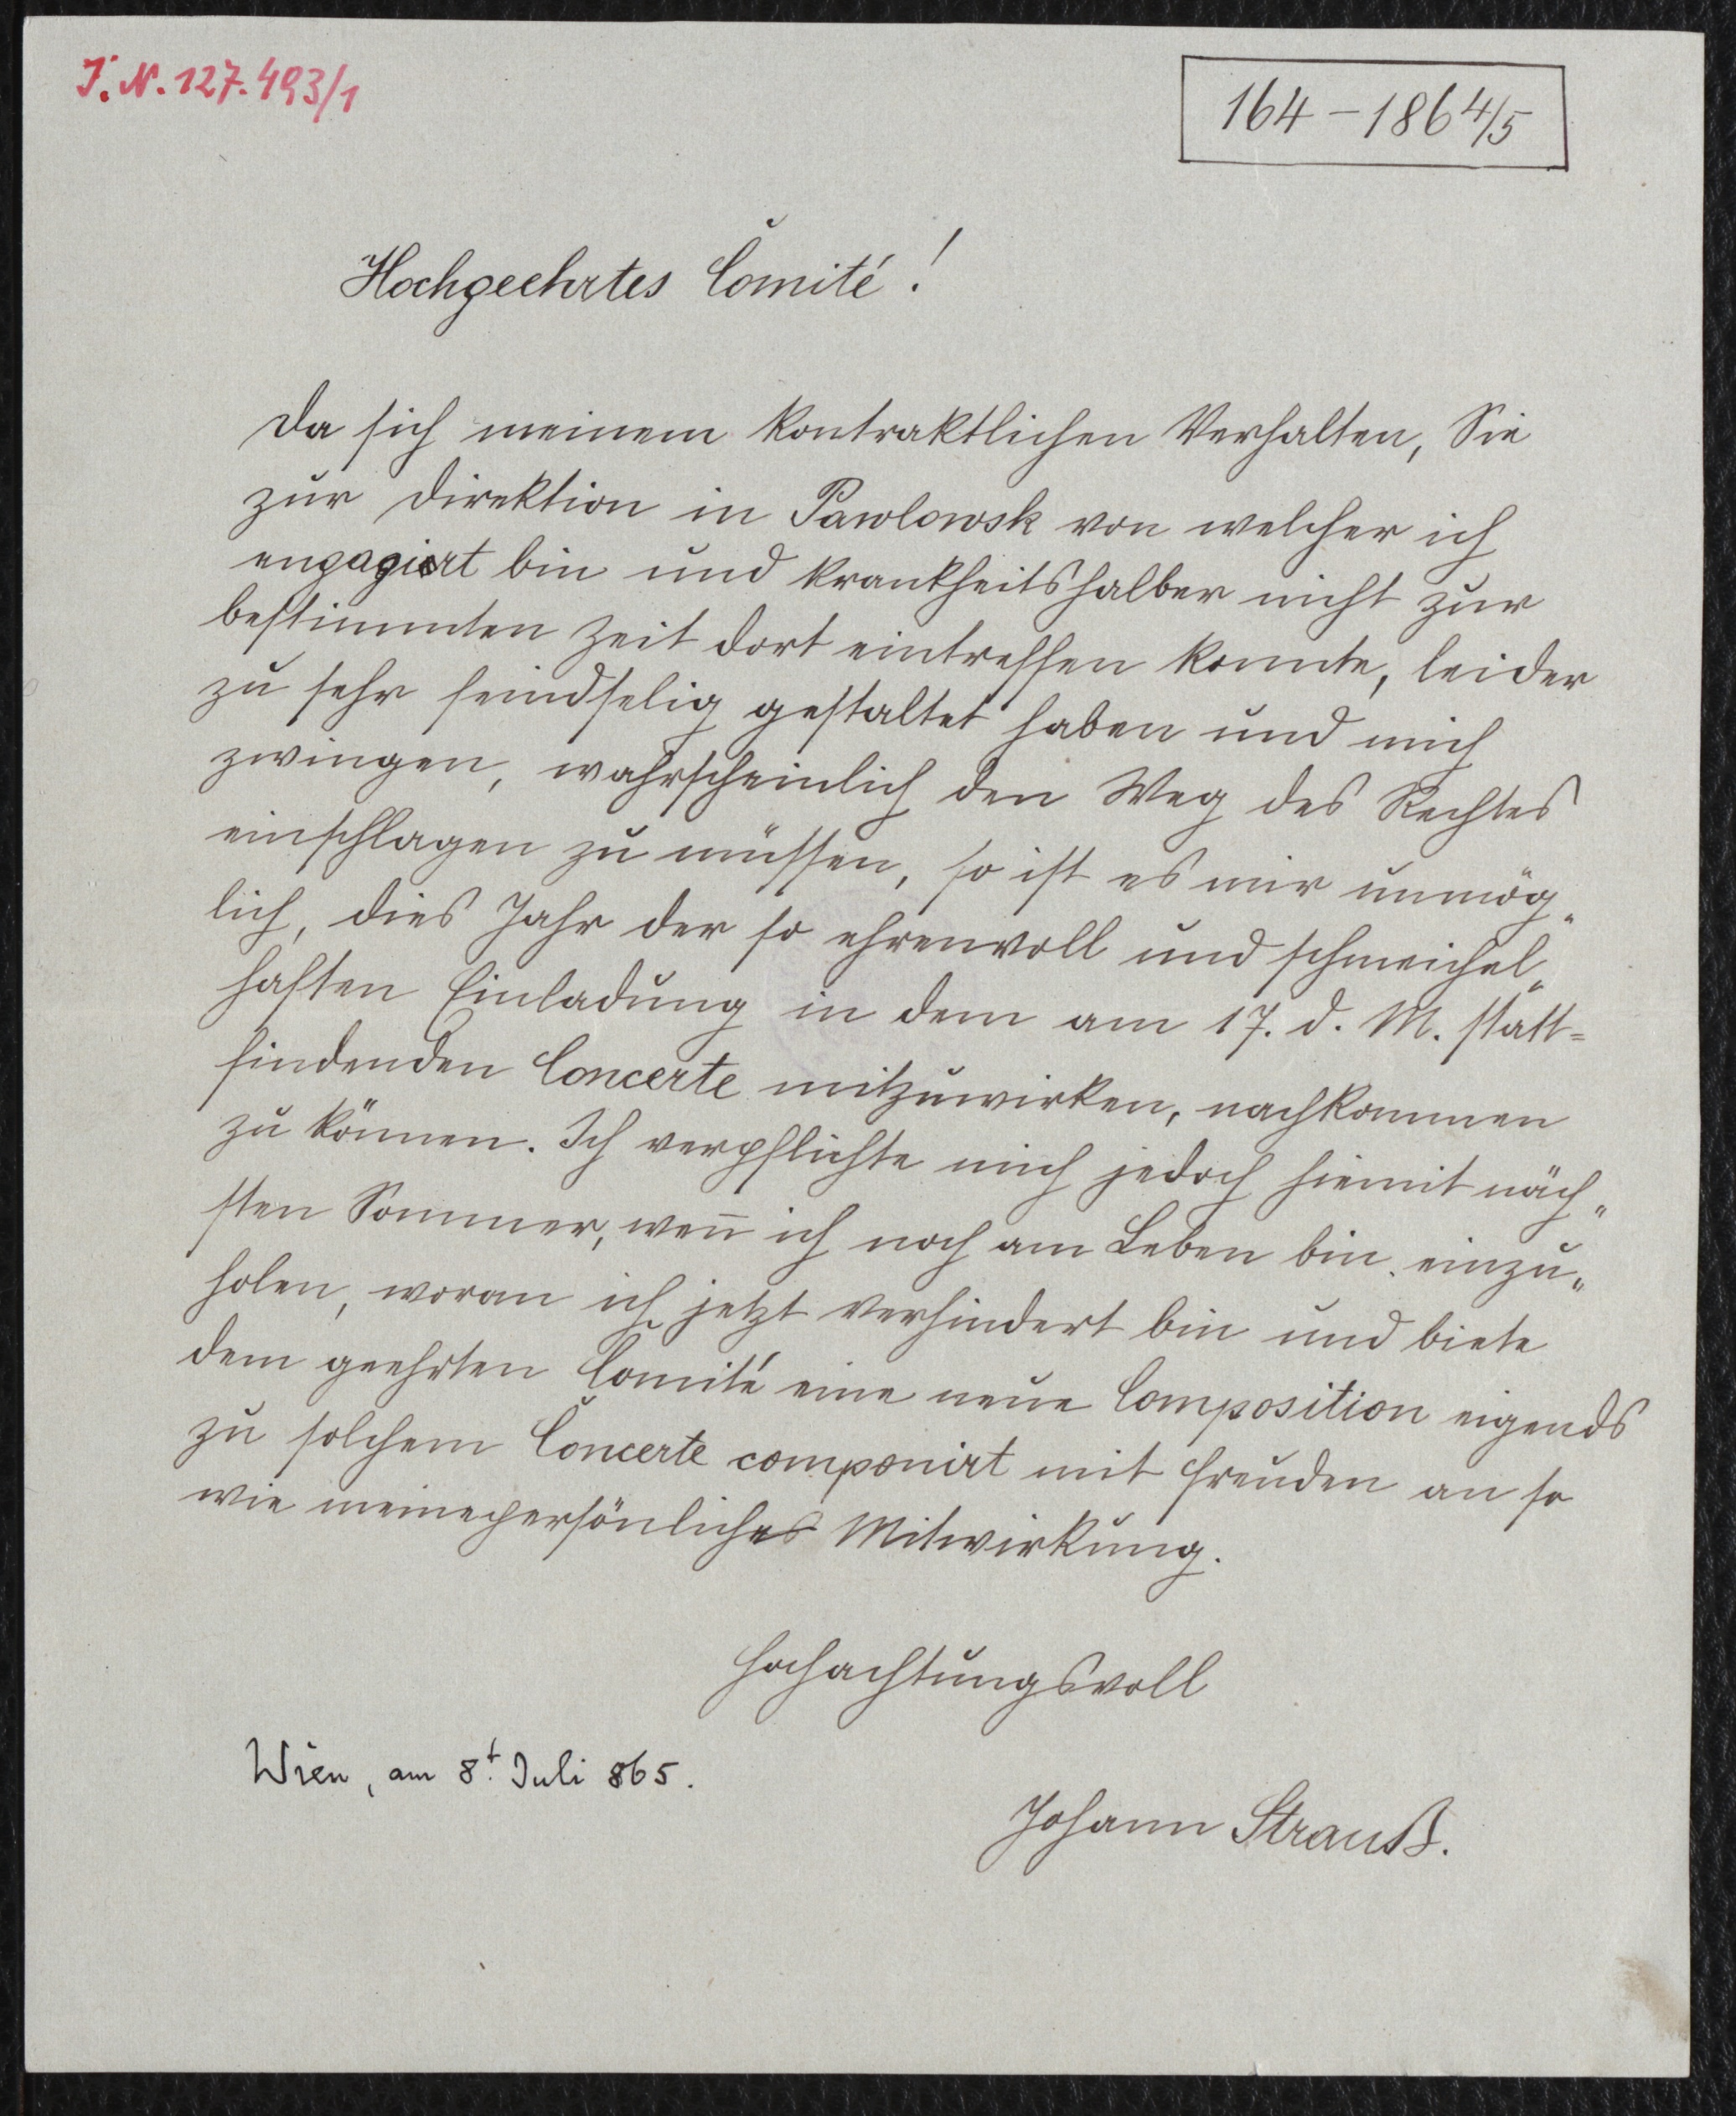 J. N. 127.493/1
164-1864/5
Hochgeehrtes Comité!
Da sich meinem kontraktlichen Verhalten, Sie
zur Direktion in Pawlowsk von welcher ich
engagiert bin und krankheitshalber nicht zur
bestimmten Zeit dort eintreffen konnte, leider
zu sehr feindselig gestaltet haben und mich
zwingen, wahrscheinlich den Weg des Rechtes
einschlagen zu müssen, so ist es mir unmög„
lich, dies Jahr der so ehrenvoll und schmeichel„
haften Einladung in dem am 17. d. M. statt=
findenden Concerte mitzuwirken, nachkommen
zu können. Ich verpflichte mich jedoch hiemit näch„
sten Sommer, weñ ich noch am Leben bin einzu„
holen, woran ich jetzt verhindert bin und biete
dem geehrten Comité eine neue Composition eigends
zu solchem Concerte componirt mit Freuden an so
wie meine persönliches Mitwirkung.
Hochachtungsvoll
Wien, am 8t Juli 865.
Johann Strauß.